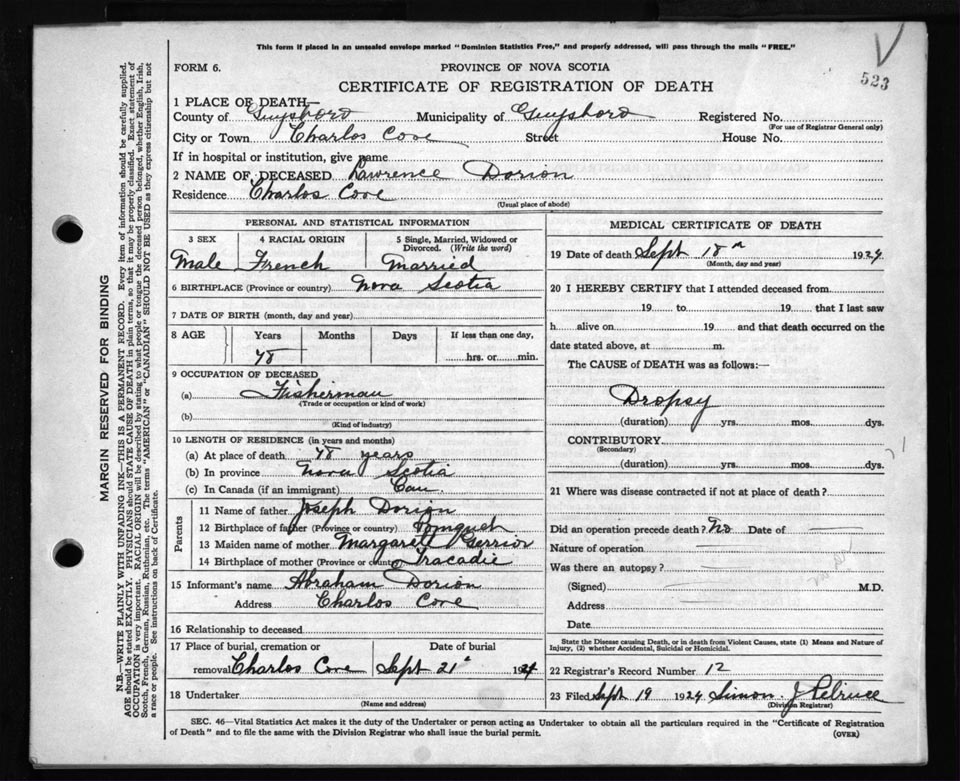 This form if placed in an unsealed envelope marked "Dominion Statistics Free," and properly addressed, will pass through the mails "FREE."
523
FORM 6.
PROVINCE OF NOVA SCOTIA
CERTIFICATE OF REGISTRATION OF DEATH
1 PLACE OF DEATH—
County of Guysboro Municipality of Guysboro Registered No.
(For use of Registrar General only)
City or Town Charlos Cove Street House No.
If in hospital or institution, give name
2 NAME OF DECEASED Lawrence Dorion
Residence Charlos Cove
(Usual place of abode)
PERSONAL AND STATISTICAL INFORMATION
3 SEX 4 RACIAL ORIGIN 5 Single, Married, Widowed or Divorced. (Write the word)
Male French Married
6 BIRTHPLACE (Province or country) Nova Scotia
7 DATE OF BIRTH (month, day and year)
8 AGE Years Months Days If less than one day,
78 hrs. or min.
9 OCCUPATION OF DECEASED
(a) Fisherman
(Trade or occupation or kind of work)
(b)
(Kind of industry)
10 LENGTH OF RESIDENCE (in years and months)
(a) At place of death 78 years
(b) In province Nova Scotia
(c) In Canada (if an immigrant) Can.
Parents
11 Name of father Joseph Dorion
12 Birthplace of father (Province or country) Pomquet
13 Maiden name of mother Margaret Gerrior
14 Birthplace of mother (Province or country) Tracadie
15 Informant's name Abraham Dorion
Address Charlos Cove
16 Relationship to deceased
17 Place of burial, cremation or removal Charlos Cove Date of burial Sept 21 1924
18 Undertaker
(Name and address)
MEDICAL CERTIFICATE OF DEATH
19 Date of death Sept 18 1924
(Month, day and year)
20 I HEREBY CERTIFY that I attended deceased from
19 to 19 that I last saw
h alive on 19 and that death occurred on the
date stated above, at m.
The CAUSE of DEATH was as follows:
Dropsy
(duration) yrs. mos. dys.
CONTRIBUTORY
(Secondary)
(duration) yrs. mos. dys.
21 Where was disease contracted if not at place of death?
Did an operation precede death? No Date of
Nature of operation
Was there an autopsy?
(Signed) M.D.
Address
Date
State the Disease causing Death, or in death from Violent Causes, state (1) Means and Nature of
Injury, (2) whether Accidental, Suicidal or Homicidal.
22 Registrar's Record Number 12
23 Filed Sept 19 1924 Simon J
(Division Registrar)
SEC. 46—Vital Statistics Act makes it the duty of the Undertaker or person acting as Undertaker to obtain all the particulars required in the "Certificate of Registration
of Death" and to file the same with the Division Registrar who shall issue the burial permit.
(OVER)
MARGIN RESERVED FOR BINDING
N.B.—WRITE PLAINLY WITH UNFADING INK—THIS IS A PERMANENT RECORD. Every item of information should be carefully supplied.
AGE should be stated EXACTLY. PHYSICIANS should STATE CAUSE OF DEATH in plain terms, so that it may be properly classified. Exact statement of
OCCUPATION is very important. RACIAL ORIGIN will be described by stating to what people or tongue the deceased person belonged, whether English, Irish,
Scotch, French, German, Russian, Ruthenian, etc. The terms "AMERICAN" or "CANADIAN" SHOULD NOT BE USED as they express citizenship but not
a race or people. See instructions on back of Certificate.